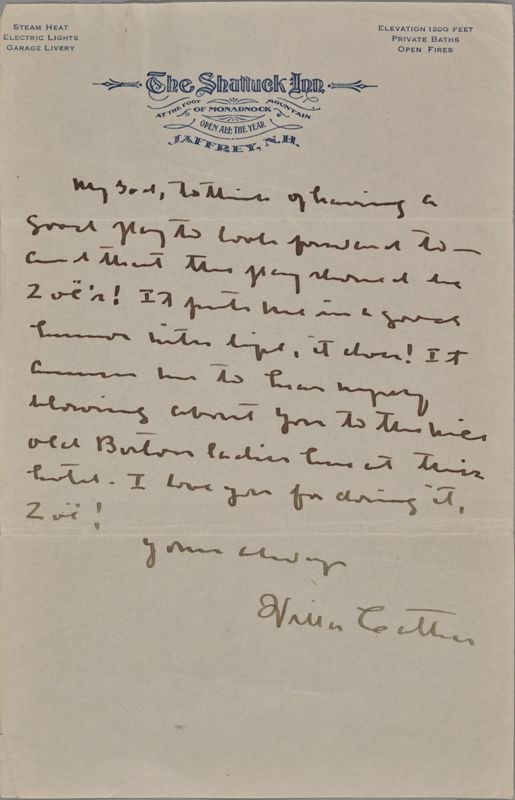 STEAM HEAT
ELECTRIC LIGHTS
GARAGE LIVERY
ELEVATION 1200 FEET
PRIVATE BATHS
OPEN FIRES
The Shattuck Inn
AT THE FOOT OF MONADNOCK MOUNTAIN
OPEN ALL THE YEAR
JAFFREY, N.H.
My God, to think of having a
good play to look forward to —
and that the play should be
Zoë's! It puts me in a good
humor with life, it does! It
amuses me to hear myself
blowing about you to the nice
old Boston ladies here at this
hotel. I love you for doing it,
Zoë!
Yours always
Willa Cather